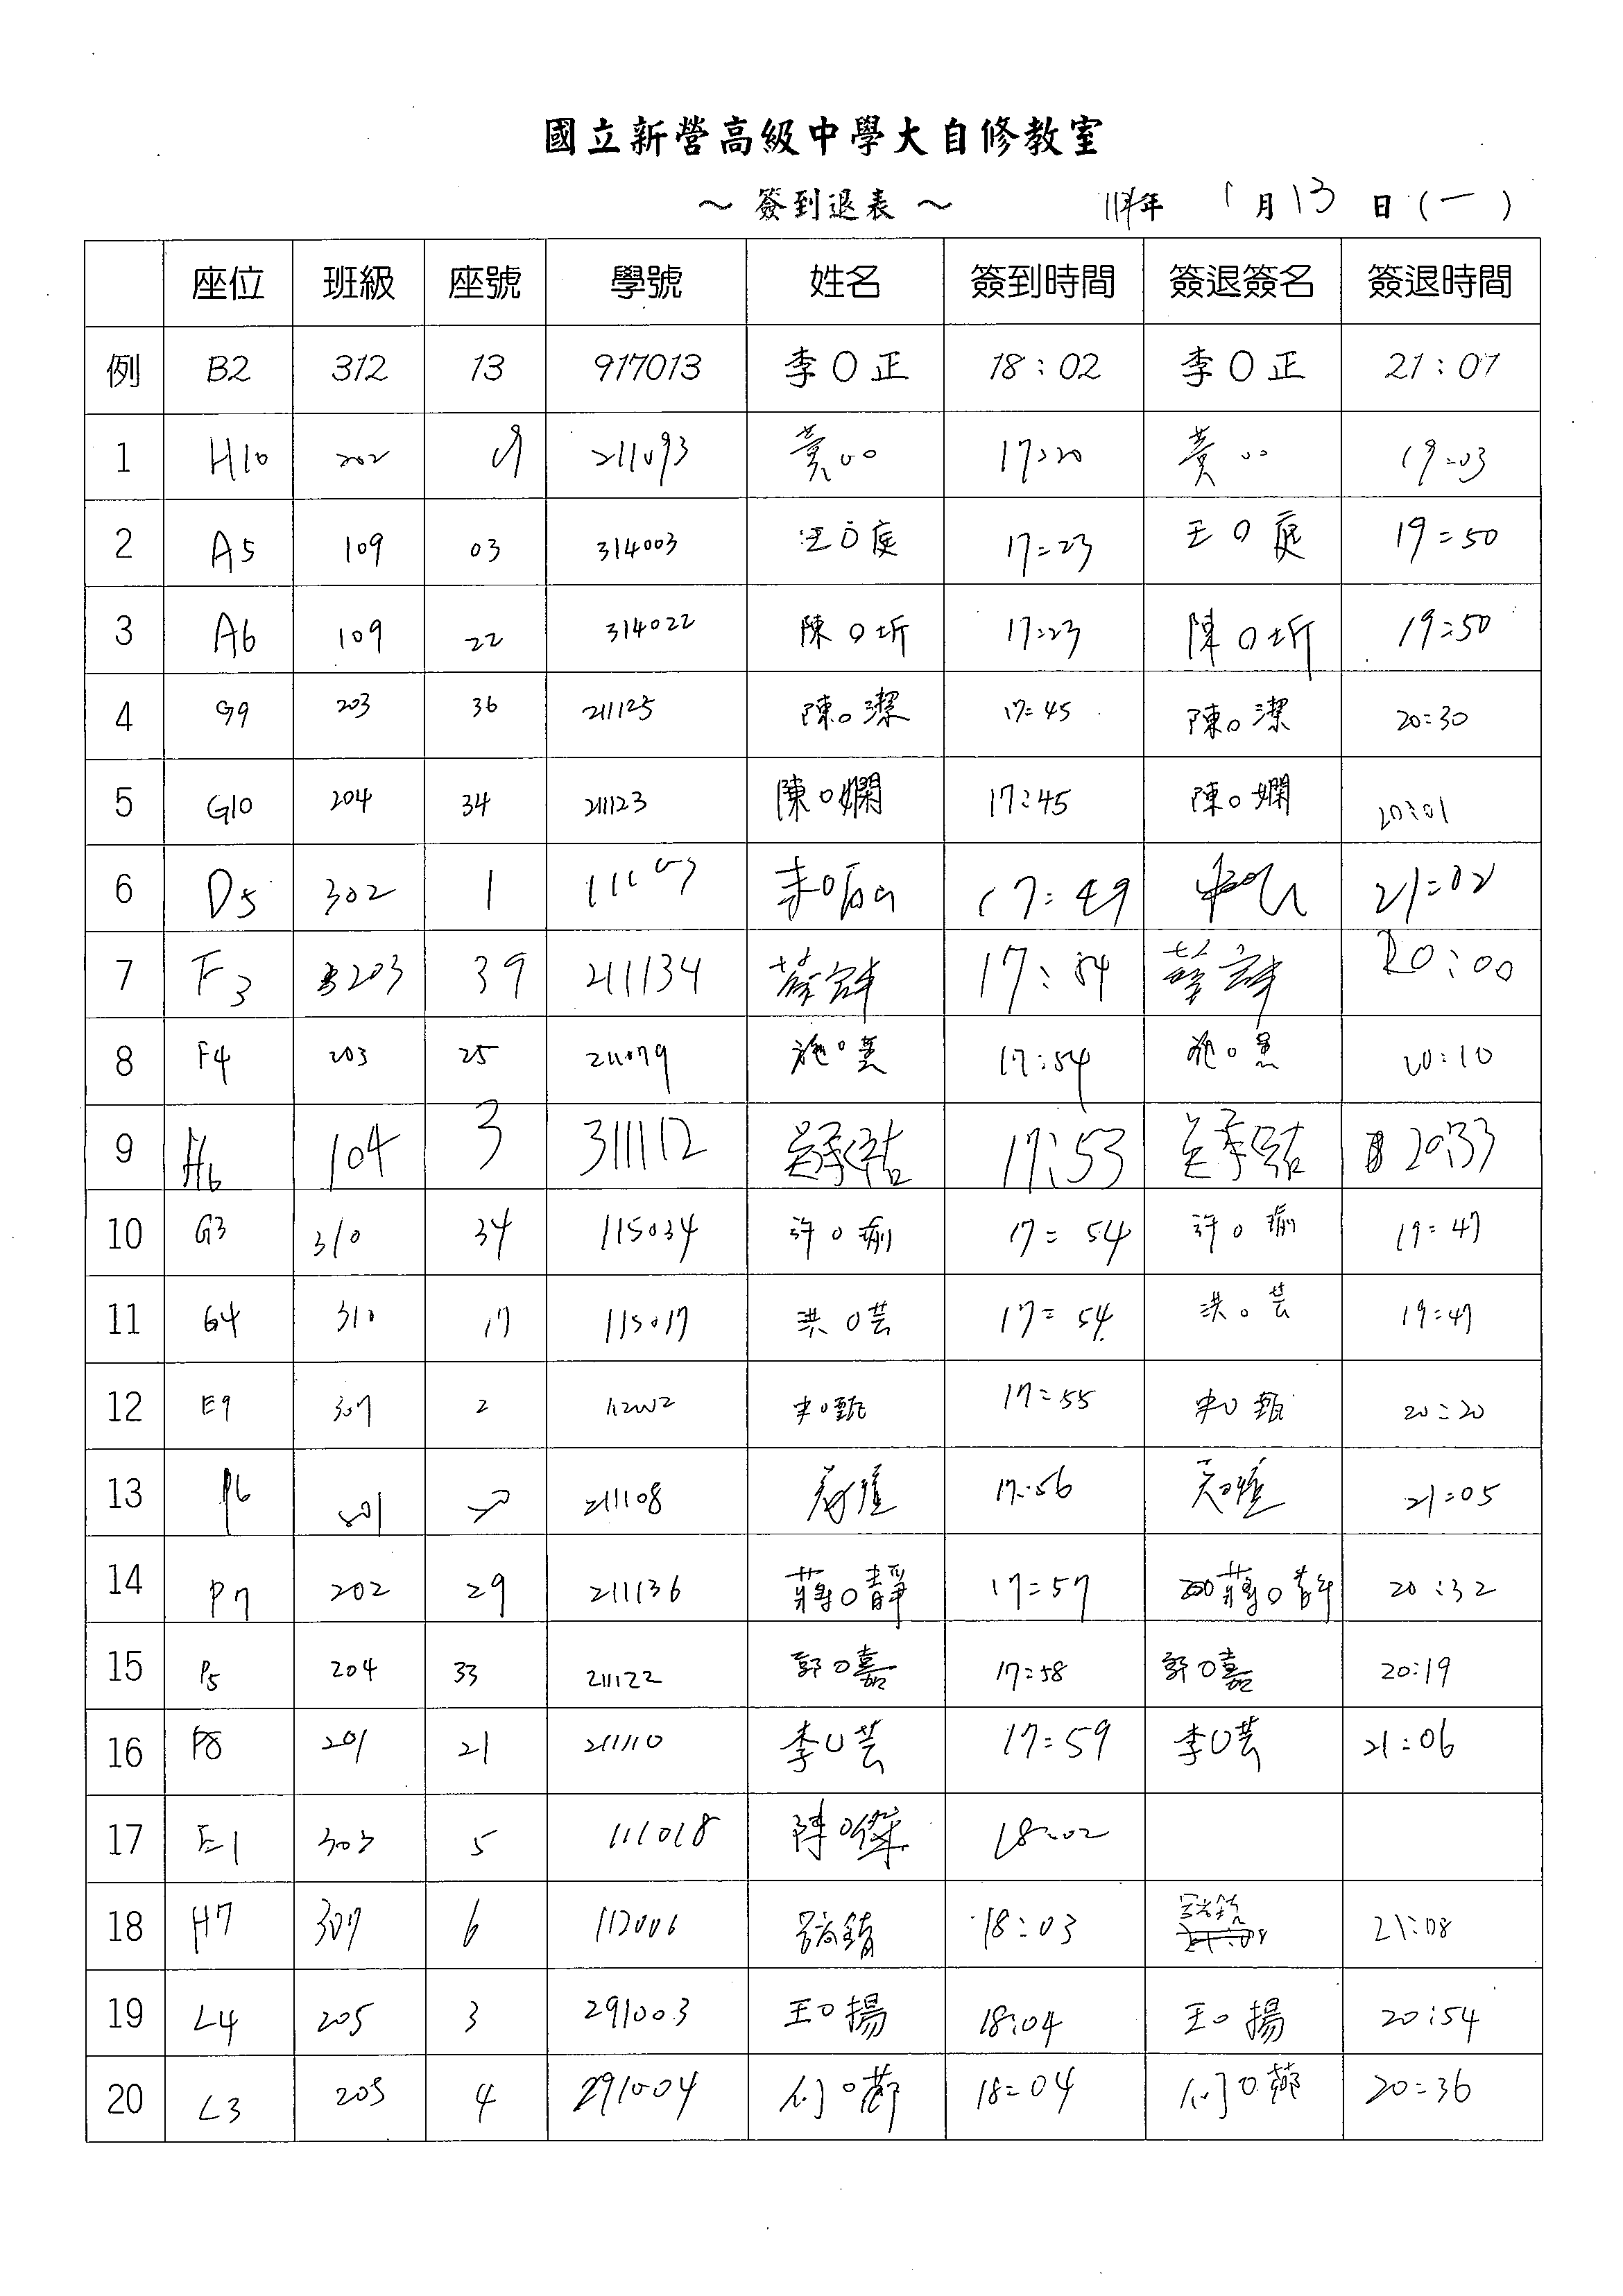 國立新營高級中學大自修教室
～簽到退表～ 114年 1月13日(一)
座位 班級 座號 學號 姓名 簽到時間 簽退簽名 簽退時間
例 B2 312 13 917013 李O正 18:02 李O正 21:07
1 H10 202 19 211093 黃OO 17:20 黃OO 19:03
2 A5 109 03 314003 王O庭 17:23 王O庭 19:50
3 A6 109 22 314022 陳O圻 17:23 陳O圻 19:50
4 G9 203 36 211125 陳O潔 17:45 陳O潔 20:30
5 G10 204 34 211123 陳O嫻 17:45 陳O嫻 20:01
6 D5 302 1 17:49 21:02
7 F3 203 39 211134 17:54 20:00
8 F4 203 25 211079 施O 17:54 施O 20:10
9 H6 104 3 311112 17:53 20:33
10 G3 310 34 115034 許O瑜 17:54 許O瑜 19:47
11 G4 310 17 115017 洪O芸 17:54 洪O芸 19:47
12 E9 307 2 112002 O甄 17:55 O甄 20:20
13 P6 201 211108 17:56 21:05
14 P7 202 29 211136 蔣O靜 17:57 蔣O靜 20:32
15 P5 204 33 211122 郭O嘉 17:58 郭O嘉 20:19
16 P8 201 21 211110 李O芸 17:59 李O芸 21:06
17 E1 303 5 111018 陳O傑 18:02
18 H7 307 6 112006 18:03 21:08
19 L4 205 3 291003 王O揚 18:04 王O揚 20:54
20 L3 205 4 291004 何O 18:04 何O 20:36